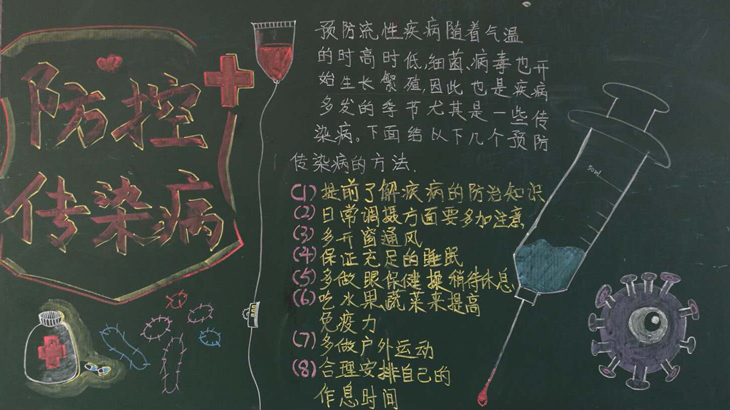 防控
传染病
预防流性疾病随着气温
的时高时低,细菌,病毒也开
始生长繁殖,因此也是疾病
多发的季节尤其是一些传
染病。下面给以下几个预防
传染病的方法.
(1)提前了解疾病的防治知识
(2)日常调摄方面要多加注意
(3)多开窗通风
(4)保证充足的睡眠
(5)多做眼保健操稍待休息
(6)吃水果,蔬菜来提高
免疫力
(7)多做户外运动
(8)合理安排自己的
作息时间